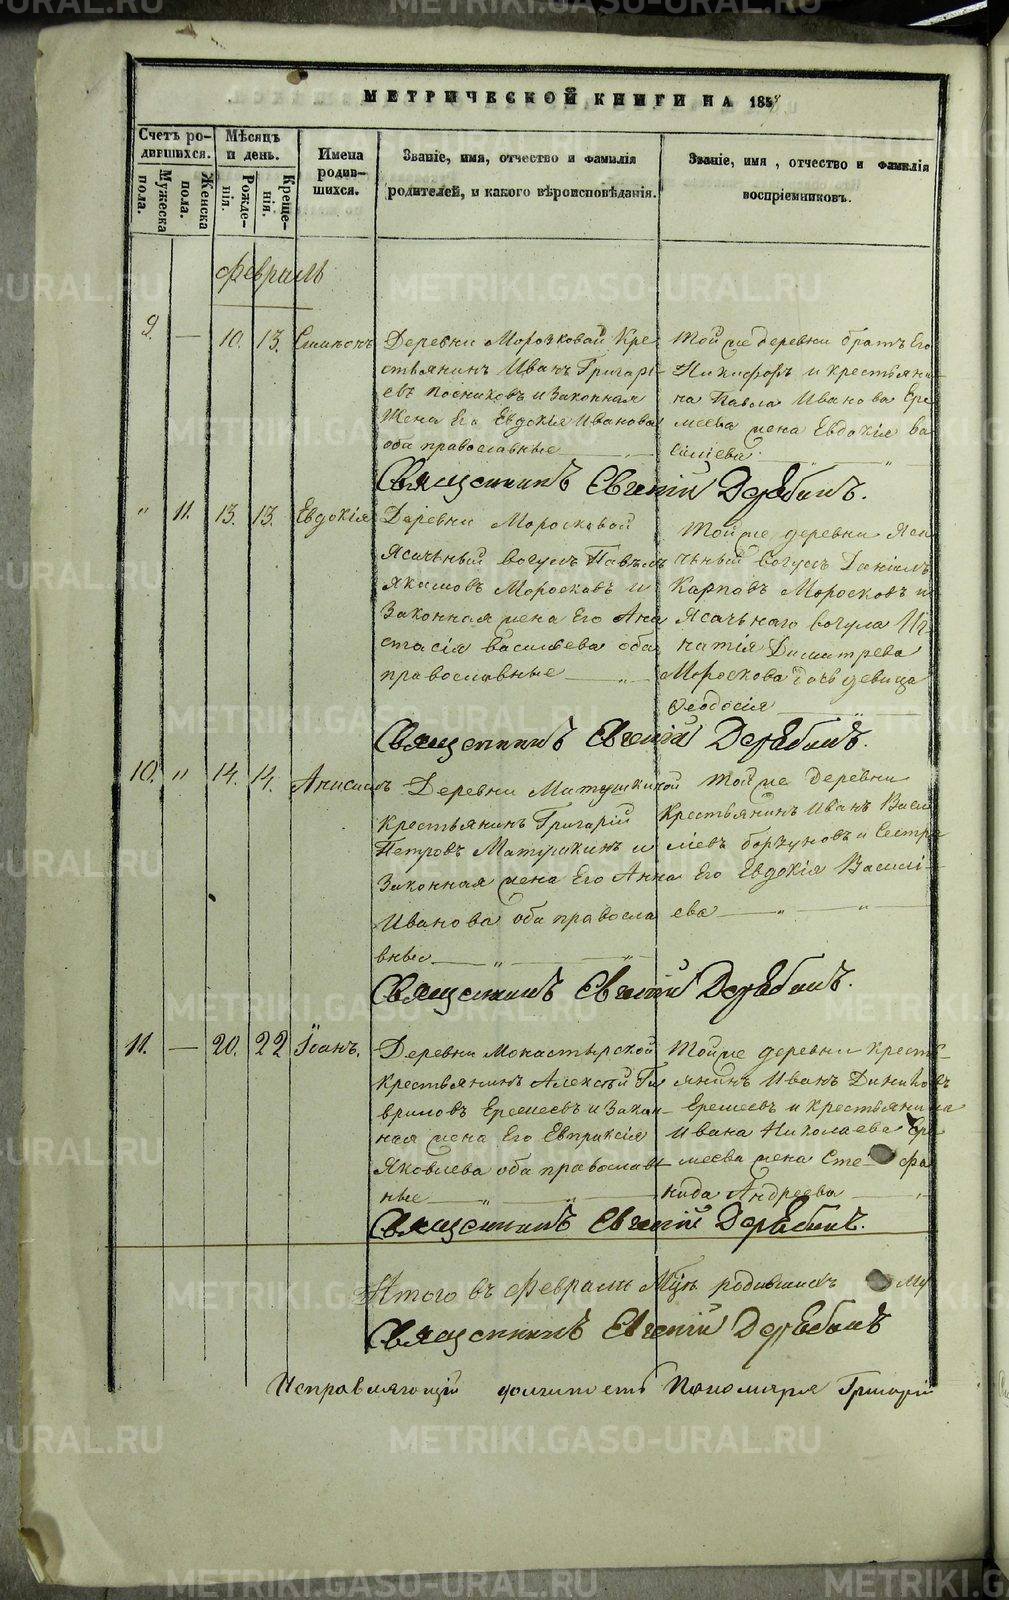 МЕТРИЧЕСКОЙ КНИГИ НА 185
Счетъ ро-
дившихся.
Мужеска
пола.
Женска
пола.
Мѣсяцъ
и день.
Рожде-
нія.
Креще-
нія.
Имена
родив-
шихся.
Званіе, имя, отчество и фамилія
родителей, и какого вѣроисповѣданія.
Званіе, имя, отчество и фамилія
воспріемниковъ.
Февраль
9. — 10. 13. Симеонъ
Деревни Морозковай Кре
стьянинъ Иванъ Григарі-
евъ Посниковъ и Законная
Жена Его Евдокія Иванова
оба православные
Той же деревни братъ Его
Никифоръ и крестьяни-
на Павла Иванова Ере
меева жена Евдокія Ва
силіева
Священникъ Евгеній Дерябинъ.
" 11. 13. 13. Евдокія
Деревни Моросковой
Ясачьный вогулъ Павелъ
Якимовъ Моросковъ и
Законная жена Его Ана
стасія Васильева оба
православные
Той же деревни Яса
чьный Вогулъ Даніилъ
Карповъ Моросковъ и
Ясачьнаго вогула Иг
натія Димитрева
Мороскова дочь девица
Феодосія
Священникъ Евгеній Дерябинъ.
10. " 14. 14. Анисимъ
Деревни Матушкиной
Крестьянинъ Григарій
Петровъ Матушкинъ и
Законная жена Его Анна
Иванова оба правосла
вные
Той же Деревни
Крестьянинъ Иванъ Васи
ліевъ Борзуновъ и Сестра
Его Евдокія Василі-
ева
Священникъ Евгеній Дерябинъ.
11. — 20. 22 Іоанъ.
Деревни Монастырской
крестьянинъ Алексѣй Га
вриловъ Еремеевъ и Закон-
ная жена Его Евпраксія
Яковлева оба православ
ные
Той же деревни Кресть-
янинъ Иванъ
Еремеевъ и крестьянина
Ивана Николаева Ере
меева жена Сте фа
нида Андреева
Священникъ Евгеній Дерябинъ.
Итого въ Февралѣ Мцѣ родившихъ му
Священникъ Евгеній Дерябинъ
Исправляющій должность Пономаря Григорій
METRIKI.GASO-URAL.RU